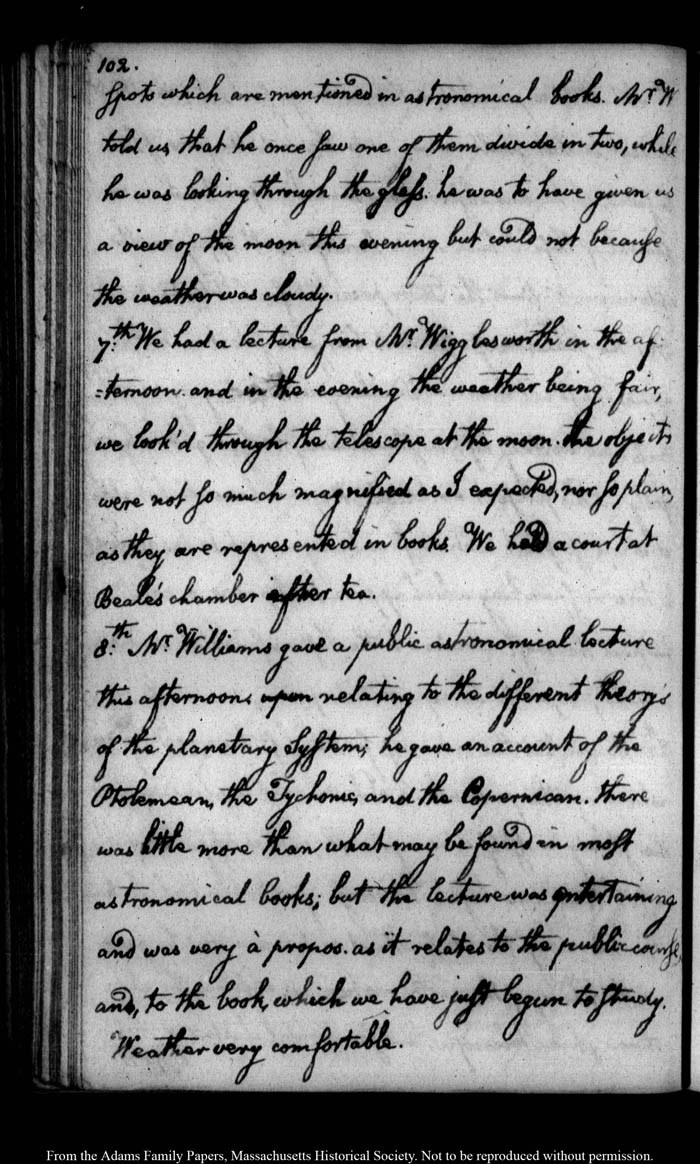 102.
spots which are mentioned in astronomical books. Mr. W
told us, that he once saw one of them divide in two, while
he was looking through the glass. he was to have given us
a view of the moon this evening but could not because
the weather was cloudy.
7.th We had a lecture from Mr. Wigglesworth in the af-
=ternoon. and in the evening the weather being fair,
we look'd through the telescope at the moon. the objects
were not so much magnified as I expected, nor so plain,
as they are represented in books. We had a court at
Beale's chamber after tea.
8.th Mr. Williams gave a public astronomical lecture
this afternoon, upon relating to the different theory's
of the planetary System; he gave an account of the
Ptolemean, the Tychonic, and the Copernican. there
was little more than what may be found in most
astronomical books; but the lecture was entertaining
and was very à propos. as it relates to the public course,
and, to the book, which we have just begun to study.
Weather very comfortable.
From the Adams Family Papers, Massachusetts Historical Society. Not to be reproduced without permission.